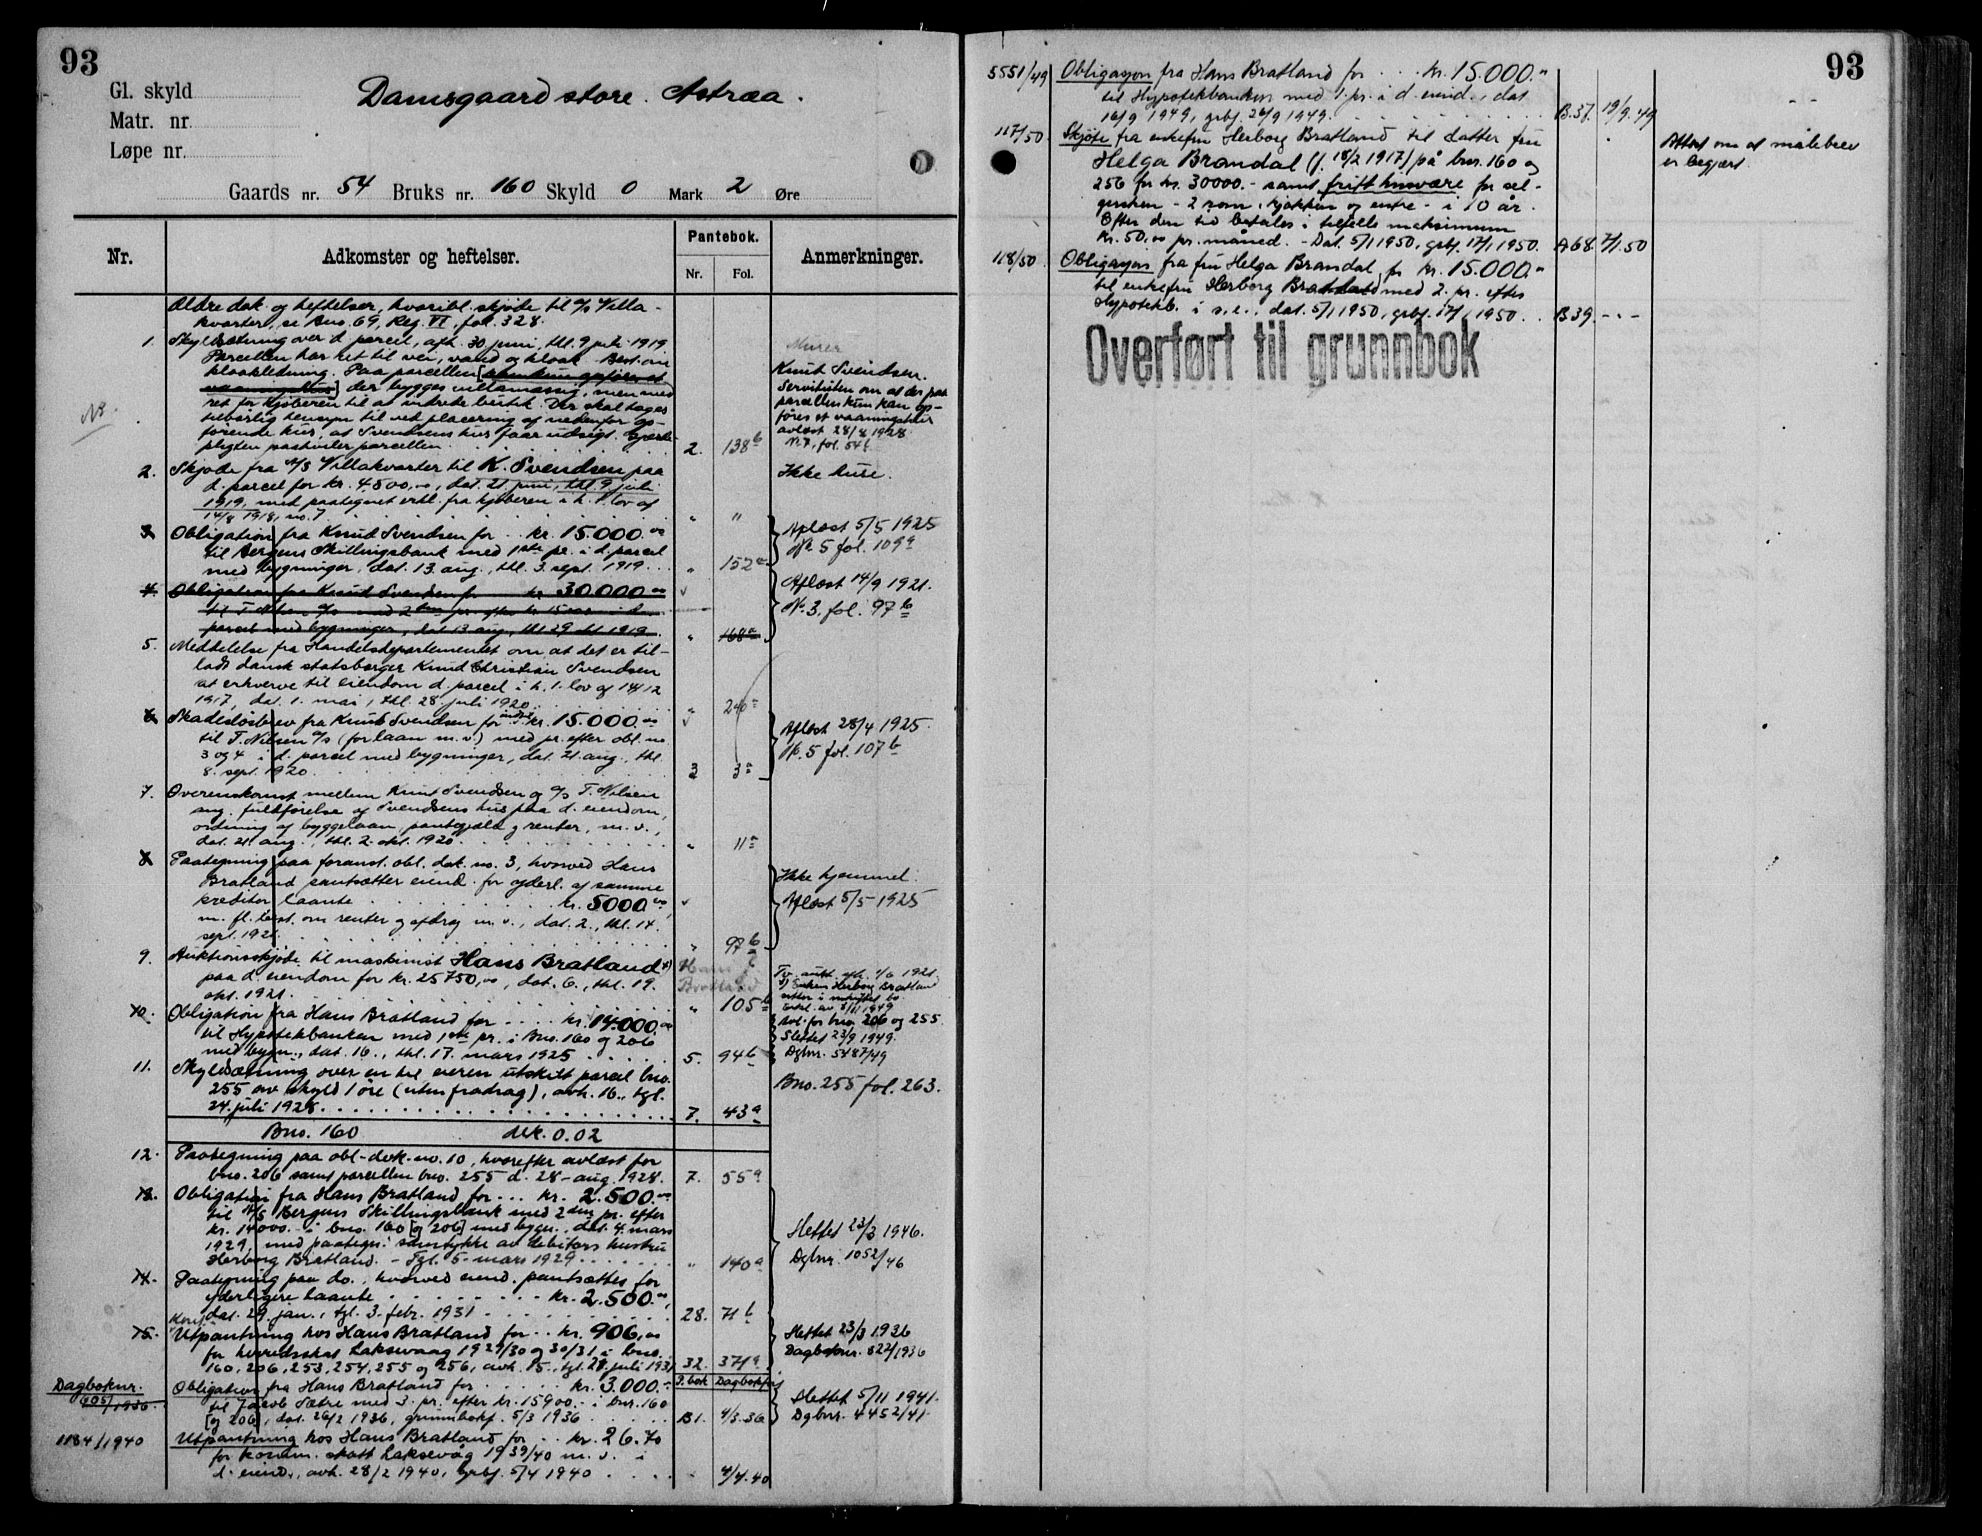 93
Gl. skyld
Matr. nr.
Løpe nr.
Damsgaard store. Astræa.
Gaards nr. 54 Bruks nr. 160 Skyld 0 Mark 2 Øre
Nr.
Adkomster og heftelser.
Pantebok.
Nr. Fol.
Anmerkninger.
Ældre dok. og heftelser, hvoribl. skjøde til a/s Villa-
kvarter, se Bno. 69, Reg. VI, fol. 328.
1. Skyldsætning over d. parcel, afh. 30. juni, thl. 9. juli 1919.
Parcellen har ret til vei, vand og kloak. Best. om
kloakledning. Paa parcellen [kan kun opføres et
vaaningshus] der bygges villamæssig, men med
ret for kjøberen til at indrede butik. Der skal tages
tilbørlig hensyn til ved placering af nedenfor op-
førende hus, at Svendsens hus faar udsigt. Gjærde-
pligten paahviler parcellen. 2. 138b
Murer
Knut Svendsen.
Servitutten om at der paa
parcellen kun kan op-
føres et vaaningshus
avløst 28/8 1928
N. 7, fol. 54b
2. Skjøde fra A/S Villakvarter til K. Svendsen paa
d. parcel for kr. 4500,00, dat. 21. juni, thl. 9. juli
1919, med paategnet erkl. fra kjøberen i h. t. lov af
14/8 1918, no. 7 " "
Ikke huse.
3. Obligation fra Knud Svendsen for .. kr. 15.000.00
til Bergens Skillingsbank med 1ste pr. i d. parcel
med bygninger, dat. 13. aug., thl. 3. sept. 1919. " 152a
Aflæst 5/5 1925
N. 5 fol. 109a
4. Obligation fra Knud Svendsen for kr. 30.000.00
til T. Nilsen a/s med 2den pr. efter kr. 15000 i d.
parcel med bygninger, dat. 13. aug., thl. 29. okt. 1919. " 168a
Aflæst 14/9 1921.
N. 3, fol. 97b
5. Meddelelse fra Handelsdepartementet om at det er til-
ladt dansk statsborger Knud Christian Svendsen
at erhverve til eiendom d. parcel i h. t. lov af 14/12
1917, dat. 1. mai, thl. 28. juli 1920. " 240a
6. Skadesløsbrev fra Knut Svendsen for indtil kr. 15.000.00
til T. Nilsen a/s (for laan m.v.) med pr. efter obl. no.
3 og 4 i d. parcel med bygninger, dat. 21. aug., thl.
8. sept. 1920. 3 3a
Aflæst 28/4 1925.
N. 5 fol. 107b
7. Overenskomst mellem Knut Svendsen og a/s T. Nilsen
ang. fuldførelse af Svendsens hus paa d. eiendom,
ordning af byggelaan, pantegjæld og renter, m.v.,
dat. 21. aug., thl. 2. okt. 1920. " 11a
8. Paategning paa foranst. obl. dok. no. 3, hvorved Hans
Bratland pantsætter eiend. for yderl. af samme
kreditor laante kr. 5000.00,
m. fl. best. om renter og afdrag m.v., dat. 2., thl. 14.
sept. 1921. " 97b
Ikke hjemmel.
Aflæst 5/5 1925
9. Auktionsskjøde til maskinist Hans Bratland x)
paa d. eiendom for kr. 25750,00, dat. 6., thl. 19.
okt. 1921. " 105b
Hans
Bratland
Tv. aukt. afh. 1/6 1921.
x) Enken Herborg Bratland
sitter i uskiftet bo
10. Obligation fra Hans Bratland for .... kr. 14.000.00
til Hypotekbanken med 1ste pr. i Bno. 160 og 206
med bygn., dat. 16., thl. 17. mars 1925 5. 94b
avl. for bno. 206 og 255.
Slettet 23/9 1949.
Dgbnr. 5487/49
11. Skyldsætning over en til eieren utskilt parcel bno.
255 av skyld 1 øre (uten fradrag), avh. 16., tgl.
24. juli 1928. 7. 43a
Bno. 255 fol. 263.
Bno. 160 sk. 0.02
12. Paategning paa obl-dok-no. 10, hvorefter avløst for
bno. 206 samt parcellen bno. 255 d. 28-aug. 1928. 7. 55a
13. Obligation fra Hans Bratland for ... kr. 2.500.00
til A/S Bergens Skillingsbank med 2den pr. efter
kr. 14000.- i bno. 160 [og 206] med bygn., dat. 4. mars
1929, med paategn. samtykke av debitors hustru
Herborg Bratland. - Tgl. 5. mars 1929 " 140a
Slettet 23/3 1946.
Dgbnr. 1052/46
14. Paategning paa do., hvorved eiend. pantsættes for
yderligere laante kr. 2.500.00,
dat. 29. jan., tgl. 3. febr. 1931 28. 71b
15. Utpantning hos Hans Bratland for .. kr. 906,00
for herredsskat Laksevaag 1929/30 og 30/31 i bno.
160, 206, 253, 254, 255 og 256, avh. 15., tgl. 28. juli 1931 32. 371a
Slettet 23/3 1936
Dagboknr. 822/1936
P. bok Dagbokførj
Dagboknr.
905/1936.
Obligation fra Hans Bratland for kr. 3.000.-
til Jacob Sætre med 3. pr. efter kr. 15900.- i bnr. 160
[og 206], dat. 26/2 1936, grunnbokf. 5/3 1936 B1. 4/3.36
Slettet 5/11 1941.
Dgbnr. 4452/41
1184/1940
Utpantning hos Hans Bratland for .. kr. 26.70
for komm. skatt Laksevåg 1939/40 m.v. i
d. eiend., avh. 28/2 1940, grbf. 5/4 1940 4/4.40
93
5551/49 Obligasjon fra Hans Bratland for ... kr. 15.000.-
til Hypotekbanken med 1. pr. i d. eiend., dat.
16/9 1949, grbf. 26/9 1949. B.37. 19/9.49
117/50 Skjøte fra enkefru Herborg Bratland til datter fru
Helga Brandal (f. 18/2 1917) på bnr. 160 og
256 for kr. 30000.- samt fritt husvære for sel-
gersken - 2 rom, kjøkken og entre - i 10 år.
Efter den tid betales i tilfelle maksimum
kr. 50,00 pr. måned. - Dat. 5/1 1950, grbf. 17/1 1950. A68. 7/1.50
Attest om at målebrev
er begjært.
118/50 Obligasjon fra fru Helga Brandal for kr. 15.000.-
til enkefru Herborg Bratland med 2. pr. efter
Hypotekb. i s. e., dat. 5/1 1950, grbf. 17/1 1950. B39. - - -
Overført til grunnbok